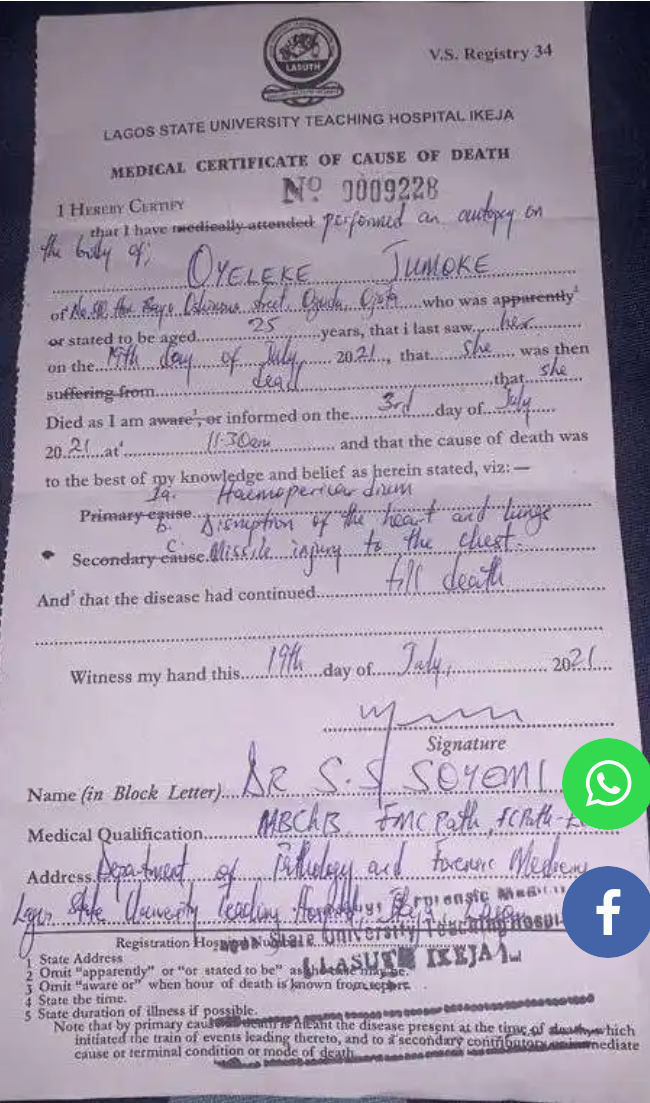 LASUTH
V.S. Registry 34
LAGOS STATE UNIVERSITY TEACHING HOSPITAL IKEJA
MEDICAL CERTIFICATE OF CAUSE OF DEATH
No 0009228
I HEREBY CERTIFY
that I have medically attended performed an autopsy on
the body of;
OYELEKE JUMOKE
of No. street, who was apparently²
or stated to be aged 25 years, that i last saw her
on the 19th day of July, 2021, that she was then
suffering from dead that she
Died as I am aware³, or informed on the 3rd day of July
2021 at⁴ 11.30am and that the cause of death was
to the best of my knowledge and belief as herein stated, viz: —
1a. Haemopericardium
Primary cause
b. Disruption of the heart and lungs
Secondary cause c. Missile injury to the chest.
And⁵ that the disease had continued till death
Witness my hand this 19th day of July, 2021
Signature
Name (in Block Letter) DR S.S SOYEMI
Medical Qualification MBCHB, FMCPath,
Address Department of Pathology and Forensic Medicine
Lagos State University Teaching Hospital, Ikeja
Forensic Medicin
Registration
State University Teaching Hospi
(LASUTH) IKEJA
1 State Address
2 Omit "apparently" or "or stated to be" as the case may be.
3 Omit "aware or" when hour of death is known from
4 State the time.
5 State duration of illness if possible.
Note that by primary cause is meant the disease present at the time of which
initiated the train of events leading thereto, and to a secondary
cause or terminal condition or mode of death